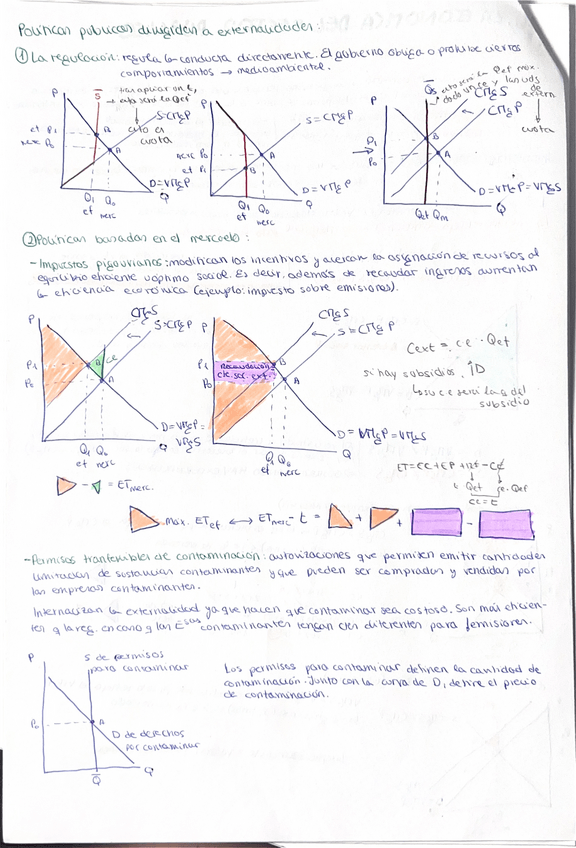 Políticas públicas dirigidas a externalidades:
① La regulación: regula la conducta directamente. El gobierno obliga o prohíbe ciertos
comportamientos → medioambiental.
P
S̄
esto será la Qef
S=CMgP
esto es
cuota
et P1
merc P0
B
A
D=VMgP
Q1 Q0 Q
ef merc
P
S=CMgP
merc P0
et P1
A
B
D=VMgP
Q1 Q0 Q
ef merc
P
Q̄s
CMgS
CMgP
cuota
P1
P0
B
A
D=VMgP=VMgS
Qef Qm Q
② Políticas basadas en el mercado:
- Impuestos pigouvianos: modifican los incentivos y acercan la asignación de recursos al
equilibrio eficiente u óptimo social. Es decir, además de recaudar ingresos aumentan
la eficiencia económica (ejemplo: impuesto sobre emisiones).
P
CMgS
S=CMgP
ce
P1
P0
B
A
D=VMgP=
VMgS
Q1 Q0 Q
ef merc
P
CMgS
S=CMgP
P1
P0
Recaudación
cte. ser. ext.
B
A
D=VMgP=VMgS
Q1 Q0 Q
ef merc
Cext = ce · Qef
si hay subsidios, ↑D
↳ su ce será la q del
subsidio
ET=EC+EP+RF-CE
t·Qef ce·Qef
ce=t
- = ETmerc.
max. ETef ↔ ETmerc - t = + + -
- Permisos tranferibles de contaminación: autorizaciones que permiten emitir cantidades
limitadas de sustancias contaminantes y que pueden ser comprados y vendidas por
las empresas contaminantes.
Internalizan la externalidad ya que hacen que contaminar sea costoso. Son más eficien-
tes q la reg. en caso q las Esas contaminantes tengan ctes diferentes para ↓emisiones.
P
S de permisos
para contaminar
P0
A
D de derechos
por contaminar
Q̄ Q
Los permisos para contaminar definen la cantidad de
contaminación. Junto con la curva de D, define el precio
de contaminación.